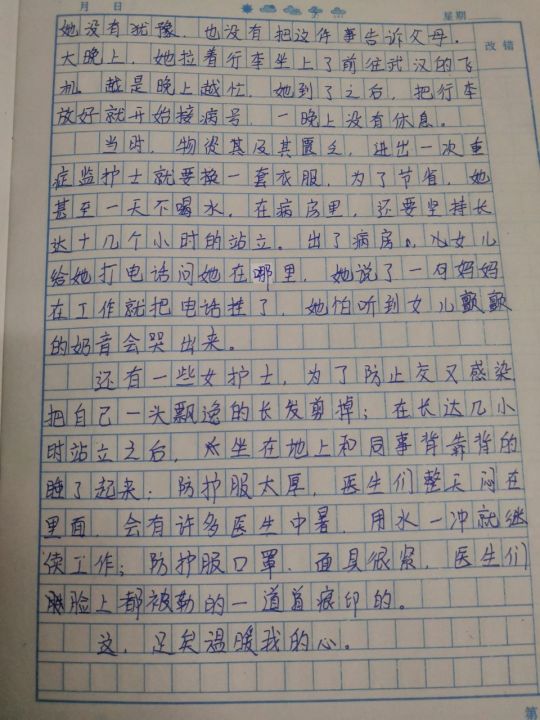 月 日 星期
改错
她没有犹豫，也没有把这件事告诉父母。
大晚上，她拉着行李坐上了前往武汉的飞
机，越是晚上越忙，她到了之后，把行李
放好就开始接病号，一晚上没有休息。
当时，物资其及其匮乏，进出一次重
症监护士就要换一套衣服，为了节省，她
甚至一天不喝水，在病房里，还要坚持长
达十几个小时的站立。出了病房。女儿
给她打电话问她在哪里，她说了一句妈妈
在工作就把电话挂了，她怕听到女儿颤颤
的奶音会哭出来。
还有一些女护士，为了防止交叉感染，
把自己一头飘逸的长发剪掉；在长达几小
时站立之后，坐在地上和同事背靠背的
睡了起来；防护服太厚，医生们整天闷在
里面，会有许多医生中暑，用水一冲就继
续工作；防护服口罩，面具很紧，医生们
脸上都被勒的一道道痕印的。
这，足矣温暖我的心。
第